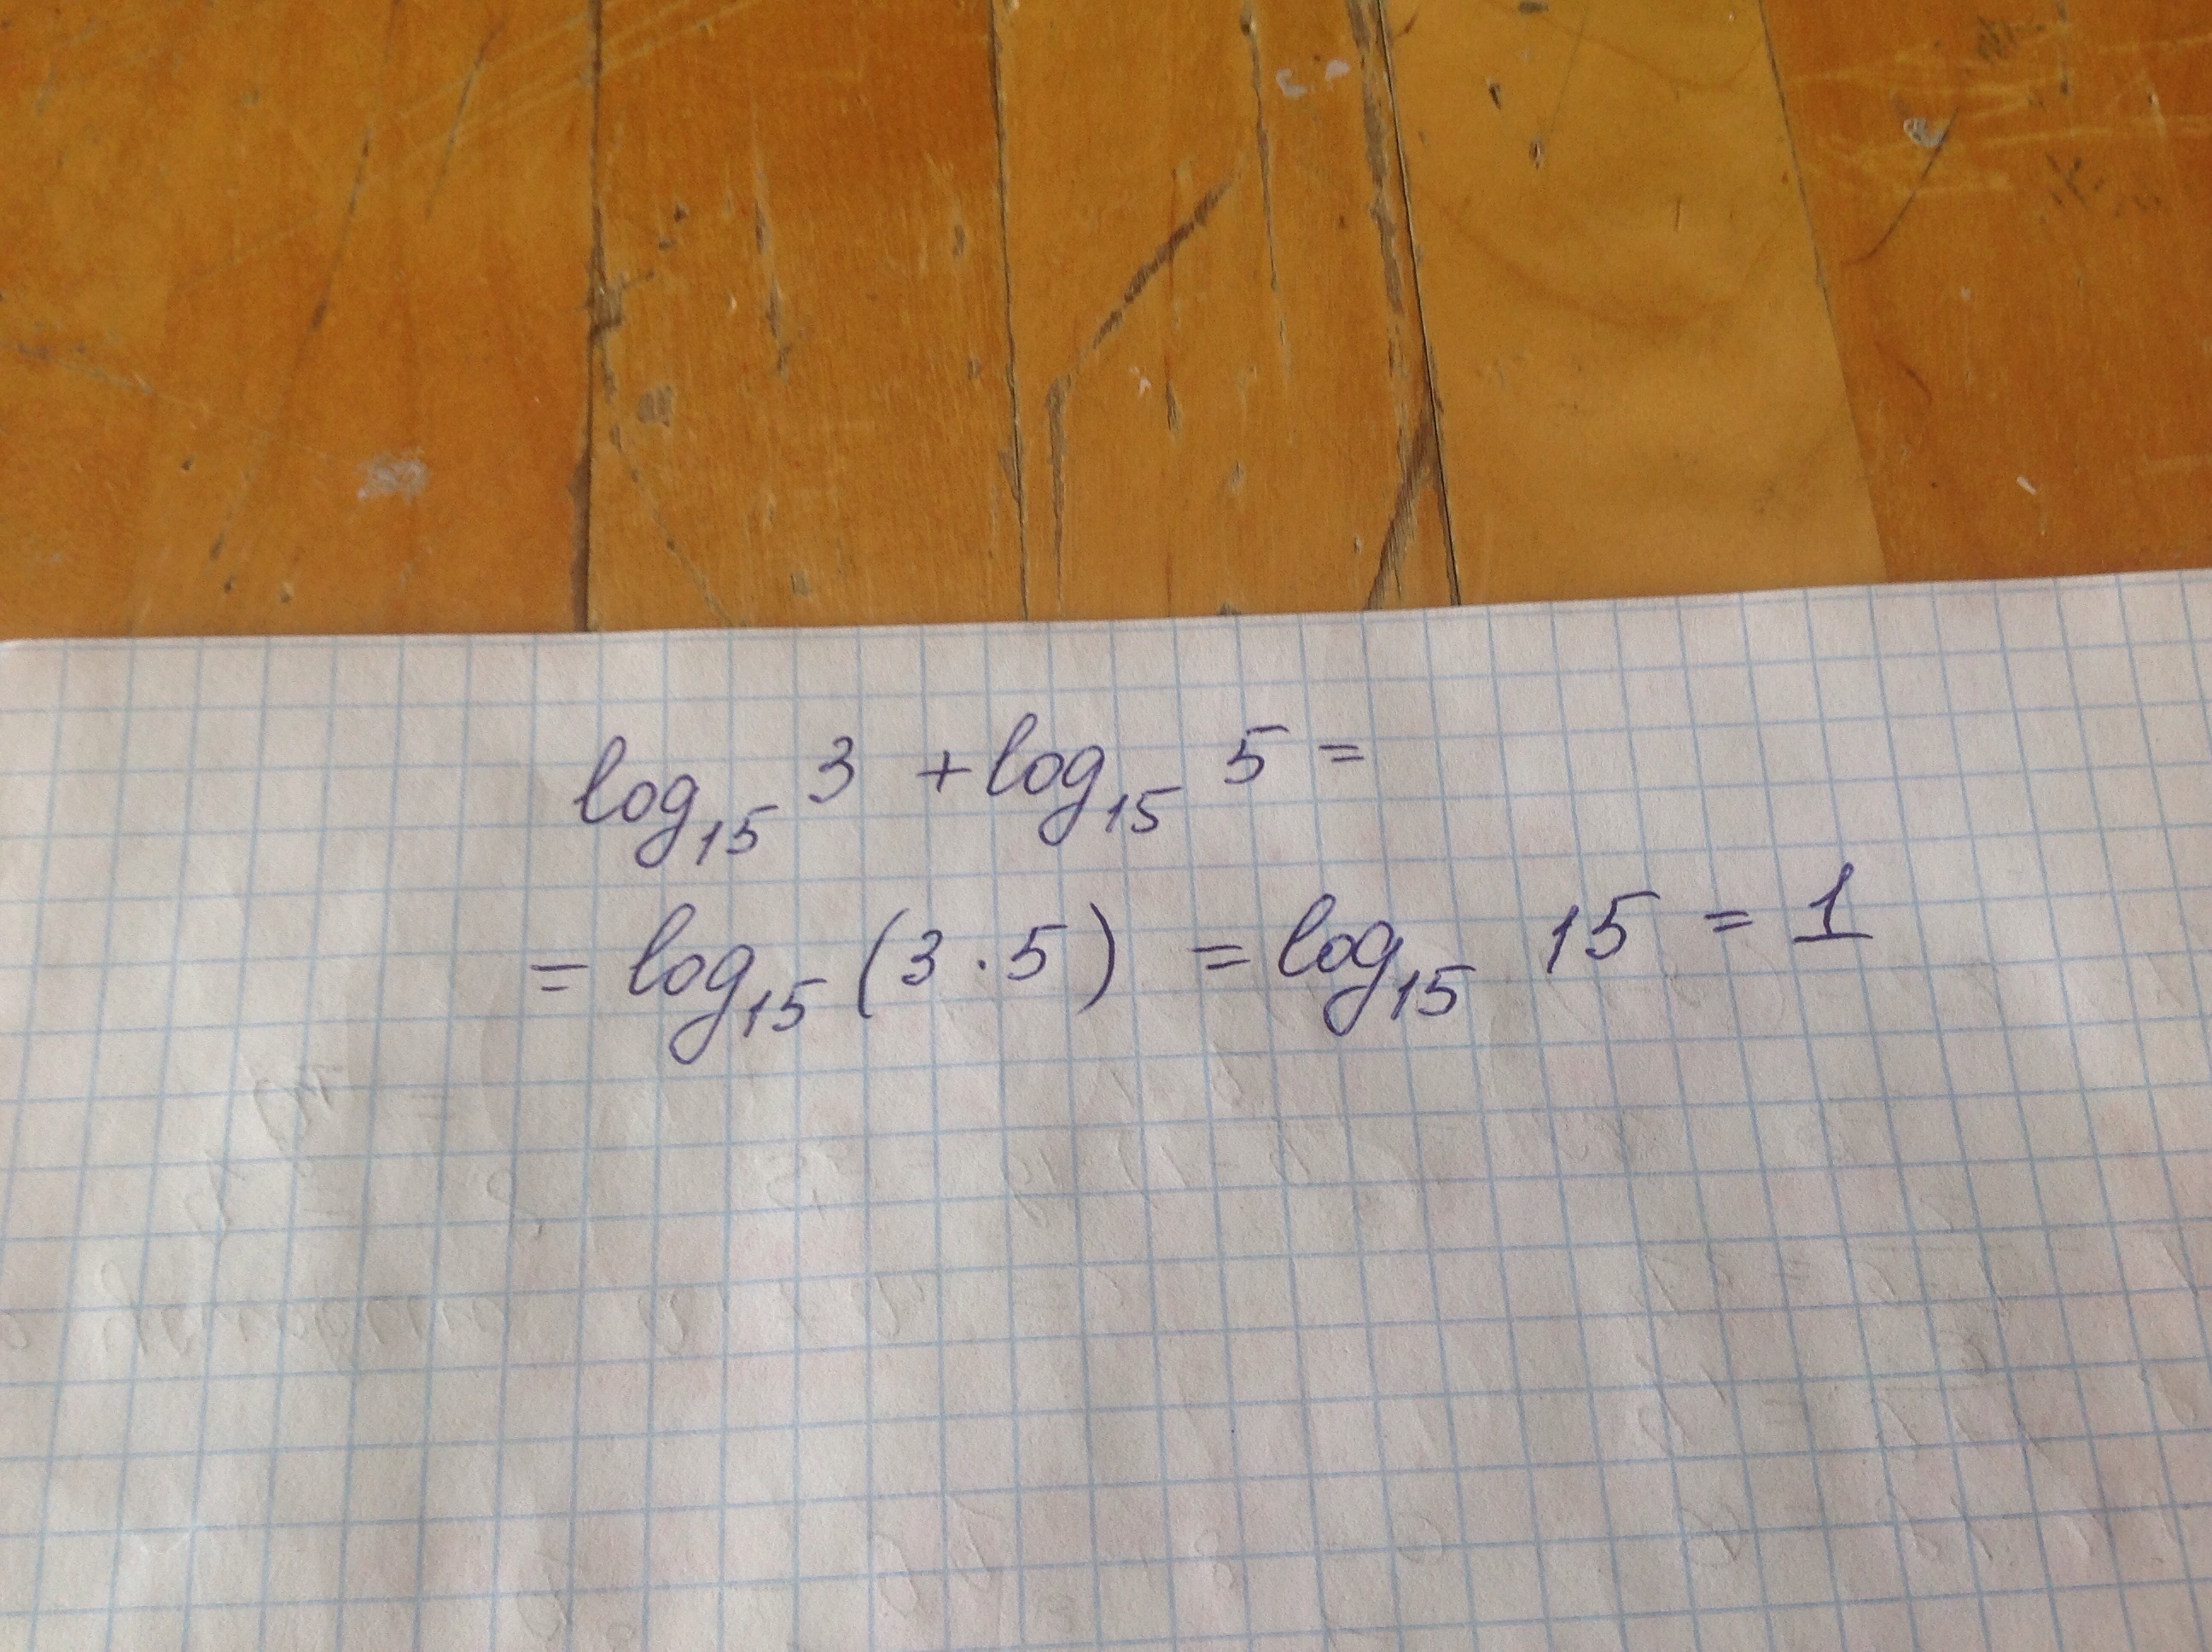 log₁₅ 3 + log₁₅ 5 =
= log₁₅ (3 · 5) = log₁₅ 15 = 1